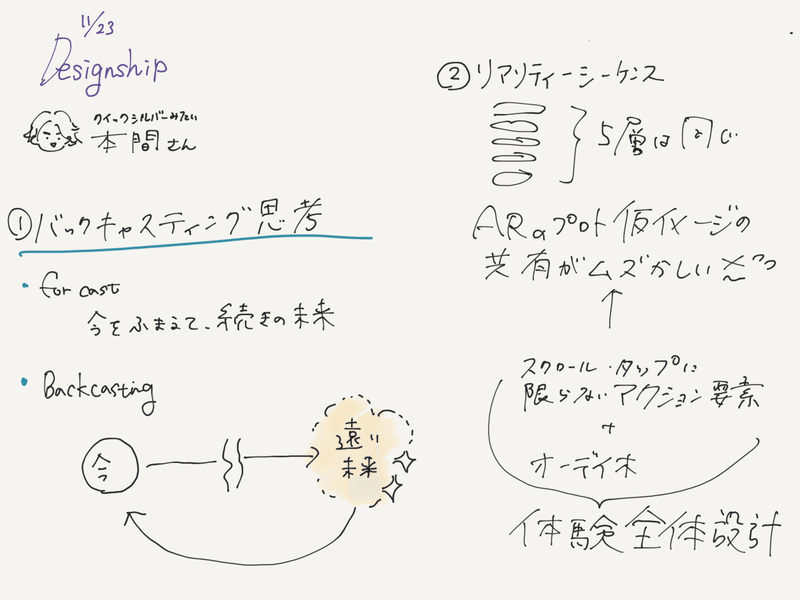 11/23
Designship
クイックシルバーみたい
本間さん
①バックキャスティング思考
・for cast
今をふまえて、続きの未来
・Backcasting
今
遠い
未来
②リアリティーシーケンス
5層は同じ
ARのプロト 仮イメージの
共有がムズかしい
スクロール・タップに
限らないアクション要素
+
オーディオ
体験全体設計